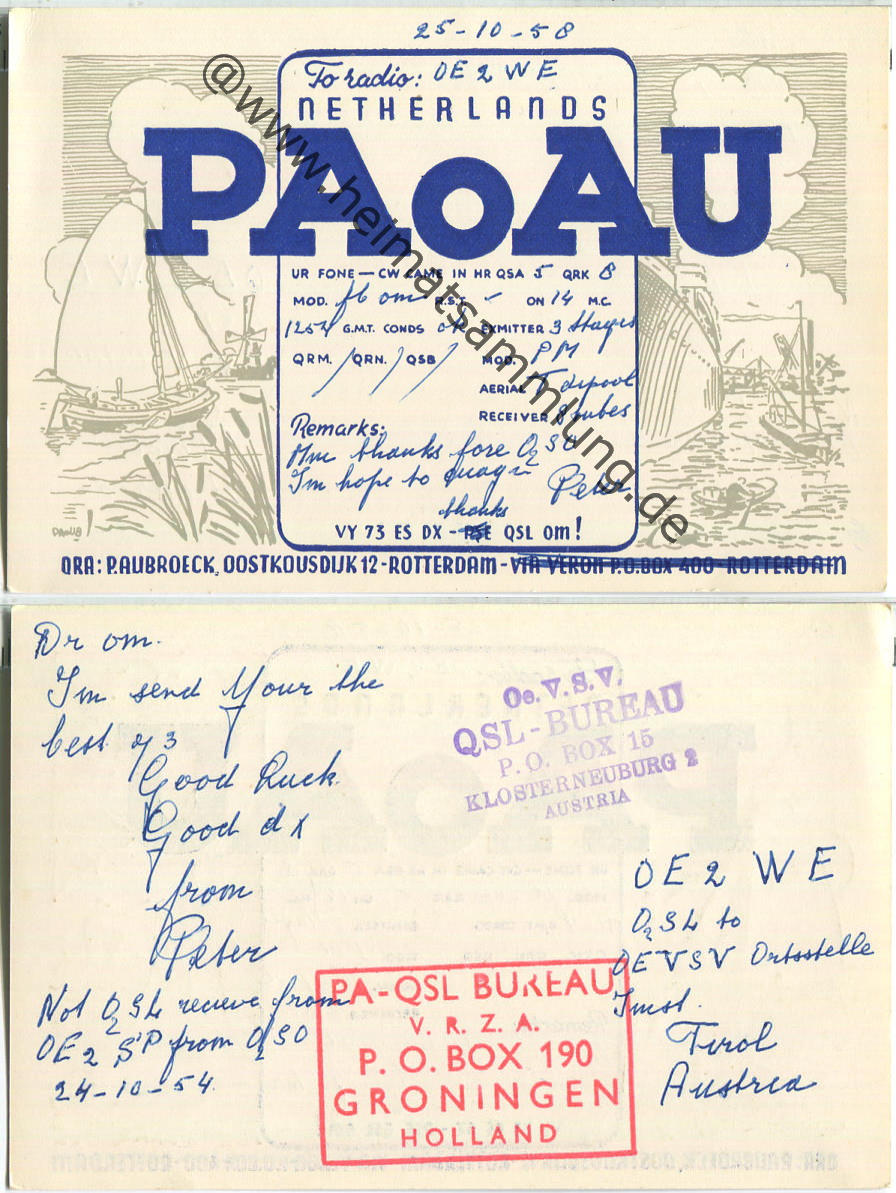 25-10-58
To radio: OE2WE
NETHERLANDS
PAoAU
UR FONE — CW CAME IN HR QSA 5 QRK 8
MOD. fb om R.S.T. - ON 14 M.C.
G.M.T. CONDS OK EXMITTER 3 Stages
QRM. / QRN. / QSB / MOD. PM
AERIAL
RECEIVER 8 tubes
Remarks:
thanks fore QSO
I'm hope to Peter
thanks
VY 73 ES DX - PSE QSL om!
DAHUB
QRA: P.AUBROECK, OOSTKOUSDIJK 12-ROTTERDAM-VIA VERON P.O.BOX 400-ROTTERDAM
@www.heimatsammlung.de
Dr om.
I'm send Your the
best 73
Good Luck
Good dx
from
Peter
Not QSL recieve from
OE2SP from QSO
24-10-54
Oe.V.S.V.
QSL-BUREAU
P.O. BOX 15
KLOSTERNEUBURG 2
AUSTRIA
OE2WE
QSL to
OEVSV Ortsstelle
Imst.
Tirol
Austrea
PA-QSL BUREAU
V.R.Z.A.
P.O.BOX 190
GRONINGEN
HOLLAND